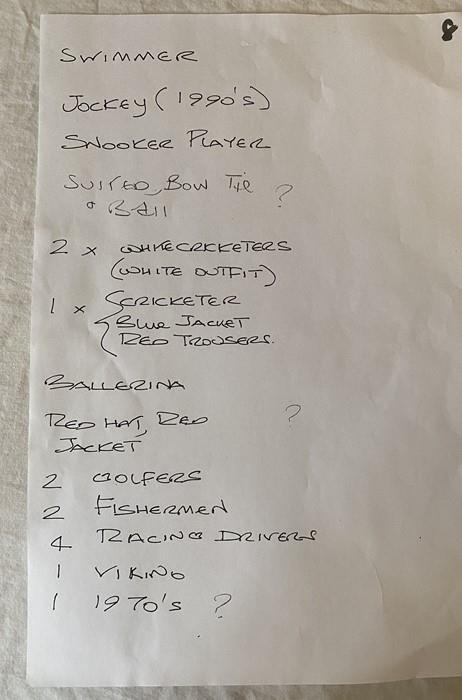 8
SWIMMER
JOCKEY (1990'S)
SNOOKER PLAYER
SUITED, BOW TIE ?
& BALL
2 x WHITE CRICKETERS
(WHITE OUTFIT)
1 x CRICKETER
BLUE JACKET
RED TROUSERS.
BALLERINA
RED HAT, RED ?
JACKET
2 GOLFERS
2 FISHERMEN
4 RACING DRIVERS
1 VIKING
1 1970'S ?